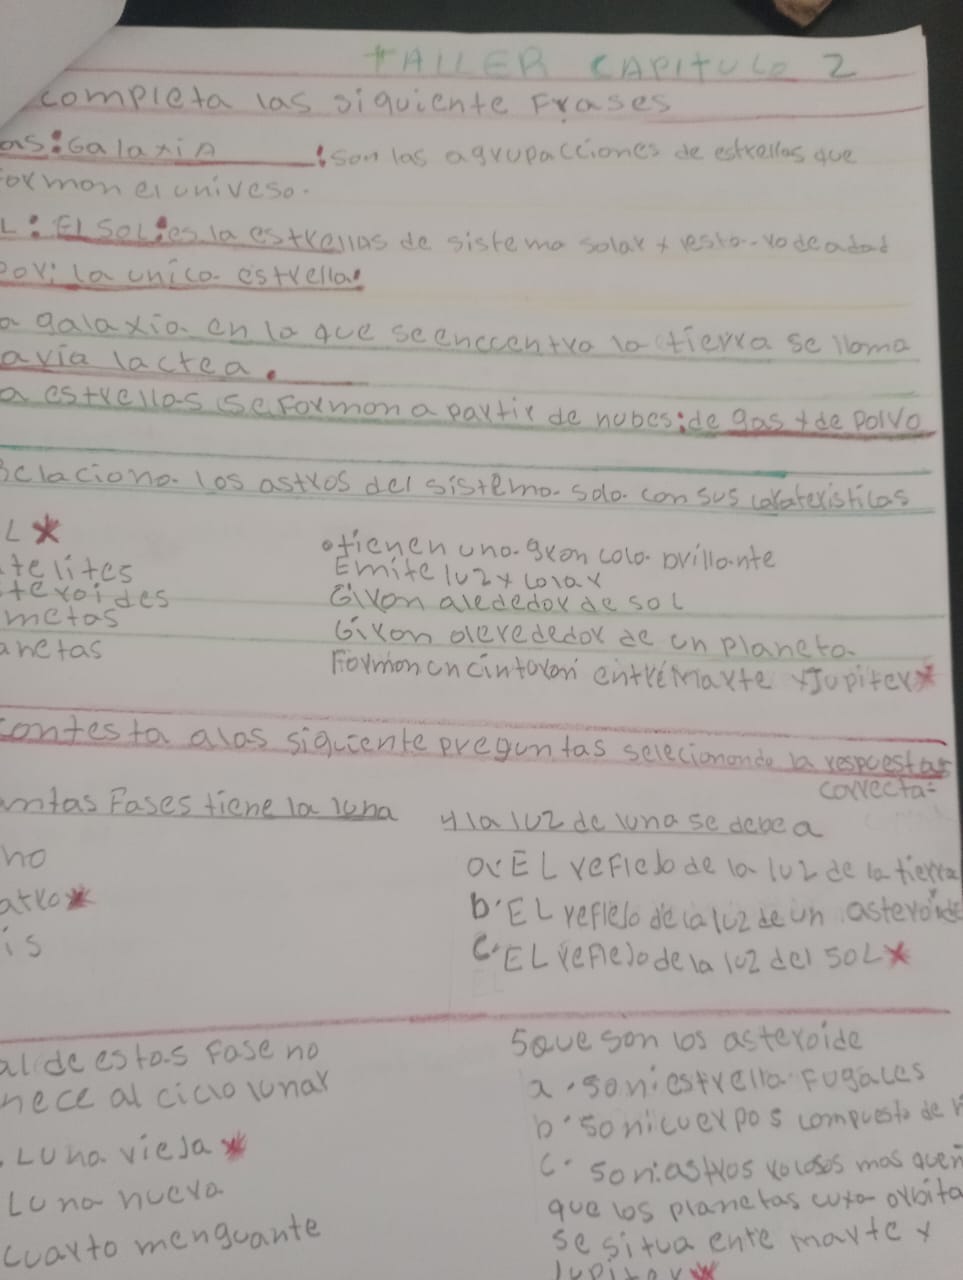 TALLER CAPITULO 2
completa las siguiente Frases
as: Galaxia : son las agrupacciones de estrellas que
ormon el univeso.
L: EL SOL: es la estrellas de sistema solar y esta rodeadad
por: la unica estrella.
a galaxia en la que se enccentra la tierra se llama
a via lactea.
a estrellas se Formon a partir de nubes: de gas y de polvo
Relaciona los astros del sistema sola con sus carateristicas
L
telites
teroides
metas
anetas
tienen una gran cola brillante
Emite luz y calar
Giran alededor de sol
Giran alerededor de un planeta
Formon un cinturon entre Marte y Jupiter
contesta a las siguiente preguntas selecionando la respuestas
correcta=
antas Fases tiene la luna
ho
atro
is
4 la luz de luna se debe a
a. EL reflejo de la luz de la tierra
b. EL reflejo de la luz de un asteroide
c. EL reflejo de la luz del SOL
al de estas Fase no
nece al ciclo lunar
. Luna vieja
Luna nueva
cuarto menguante
5 que son los asteroide
a. son: estrella Fugaces
b. son: cuerpos compuesto de
c. son: astros rocosos mas
que los planetas cuya orbita
se situa entre marte y
Jupiter